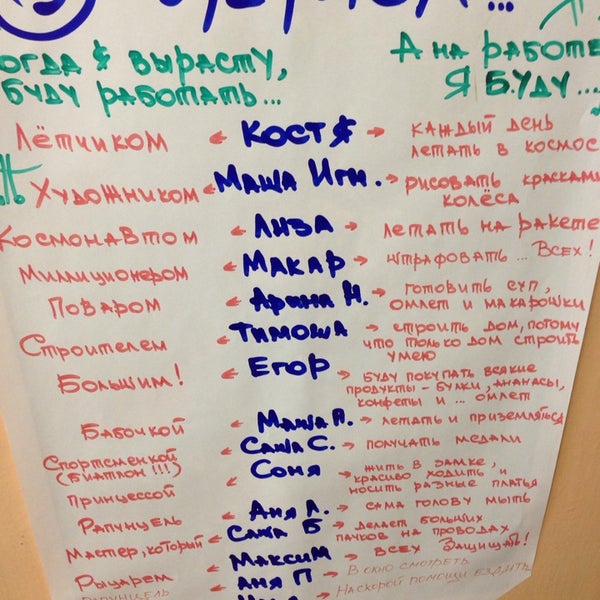 огда я вырасту,
буду работать...
А на работе
я буду...
Лётчиком ← Костя → каждый день
летать в космос
Художником ← Маша Игн. → рисовать красками
колёса
Космонавтом ← Лиза → летать на ракете
Миллиционером ← Макар → штрафовать... Всех!
Поваром ← Арина Н. → готовить суп,
омлет и макарошки
Строителем ← Тимоша → строить дом, потому
что только дом строить
умею
Большим! ← Егор → буду покупать всякие
продукты - булки, ананасы,
конфеты и ... омлет
Бабочкой ← Маша А. → летать и приземляться
Спортсменкой ← Саша С. → получать медали
(биатлон!!!)
Принцессой ← Соня → жить в замке,
красиво ходить и
носить разные платья
Рапунцель ← Аня Л. → сама голову мыть
Мастер, который ← Саша Б → делает больших
пауков на проводах
Рыцарем ← Максим → всех защищать!
Рапунцель ← Аня П → В окно смотреть
На скорой помощи ездить